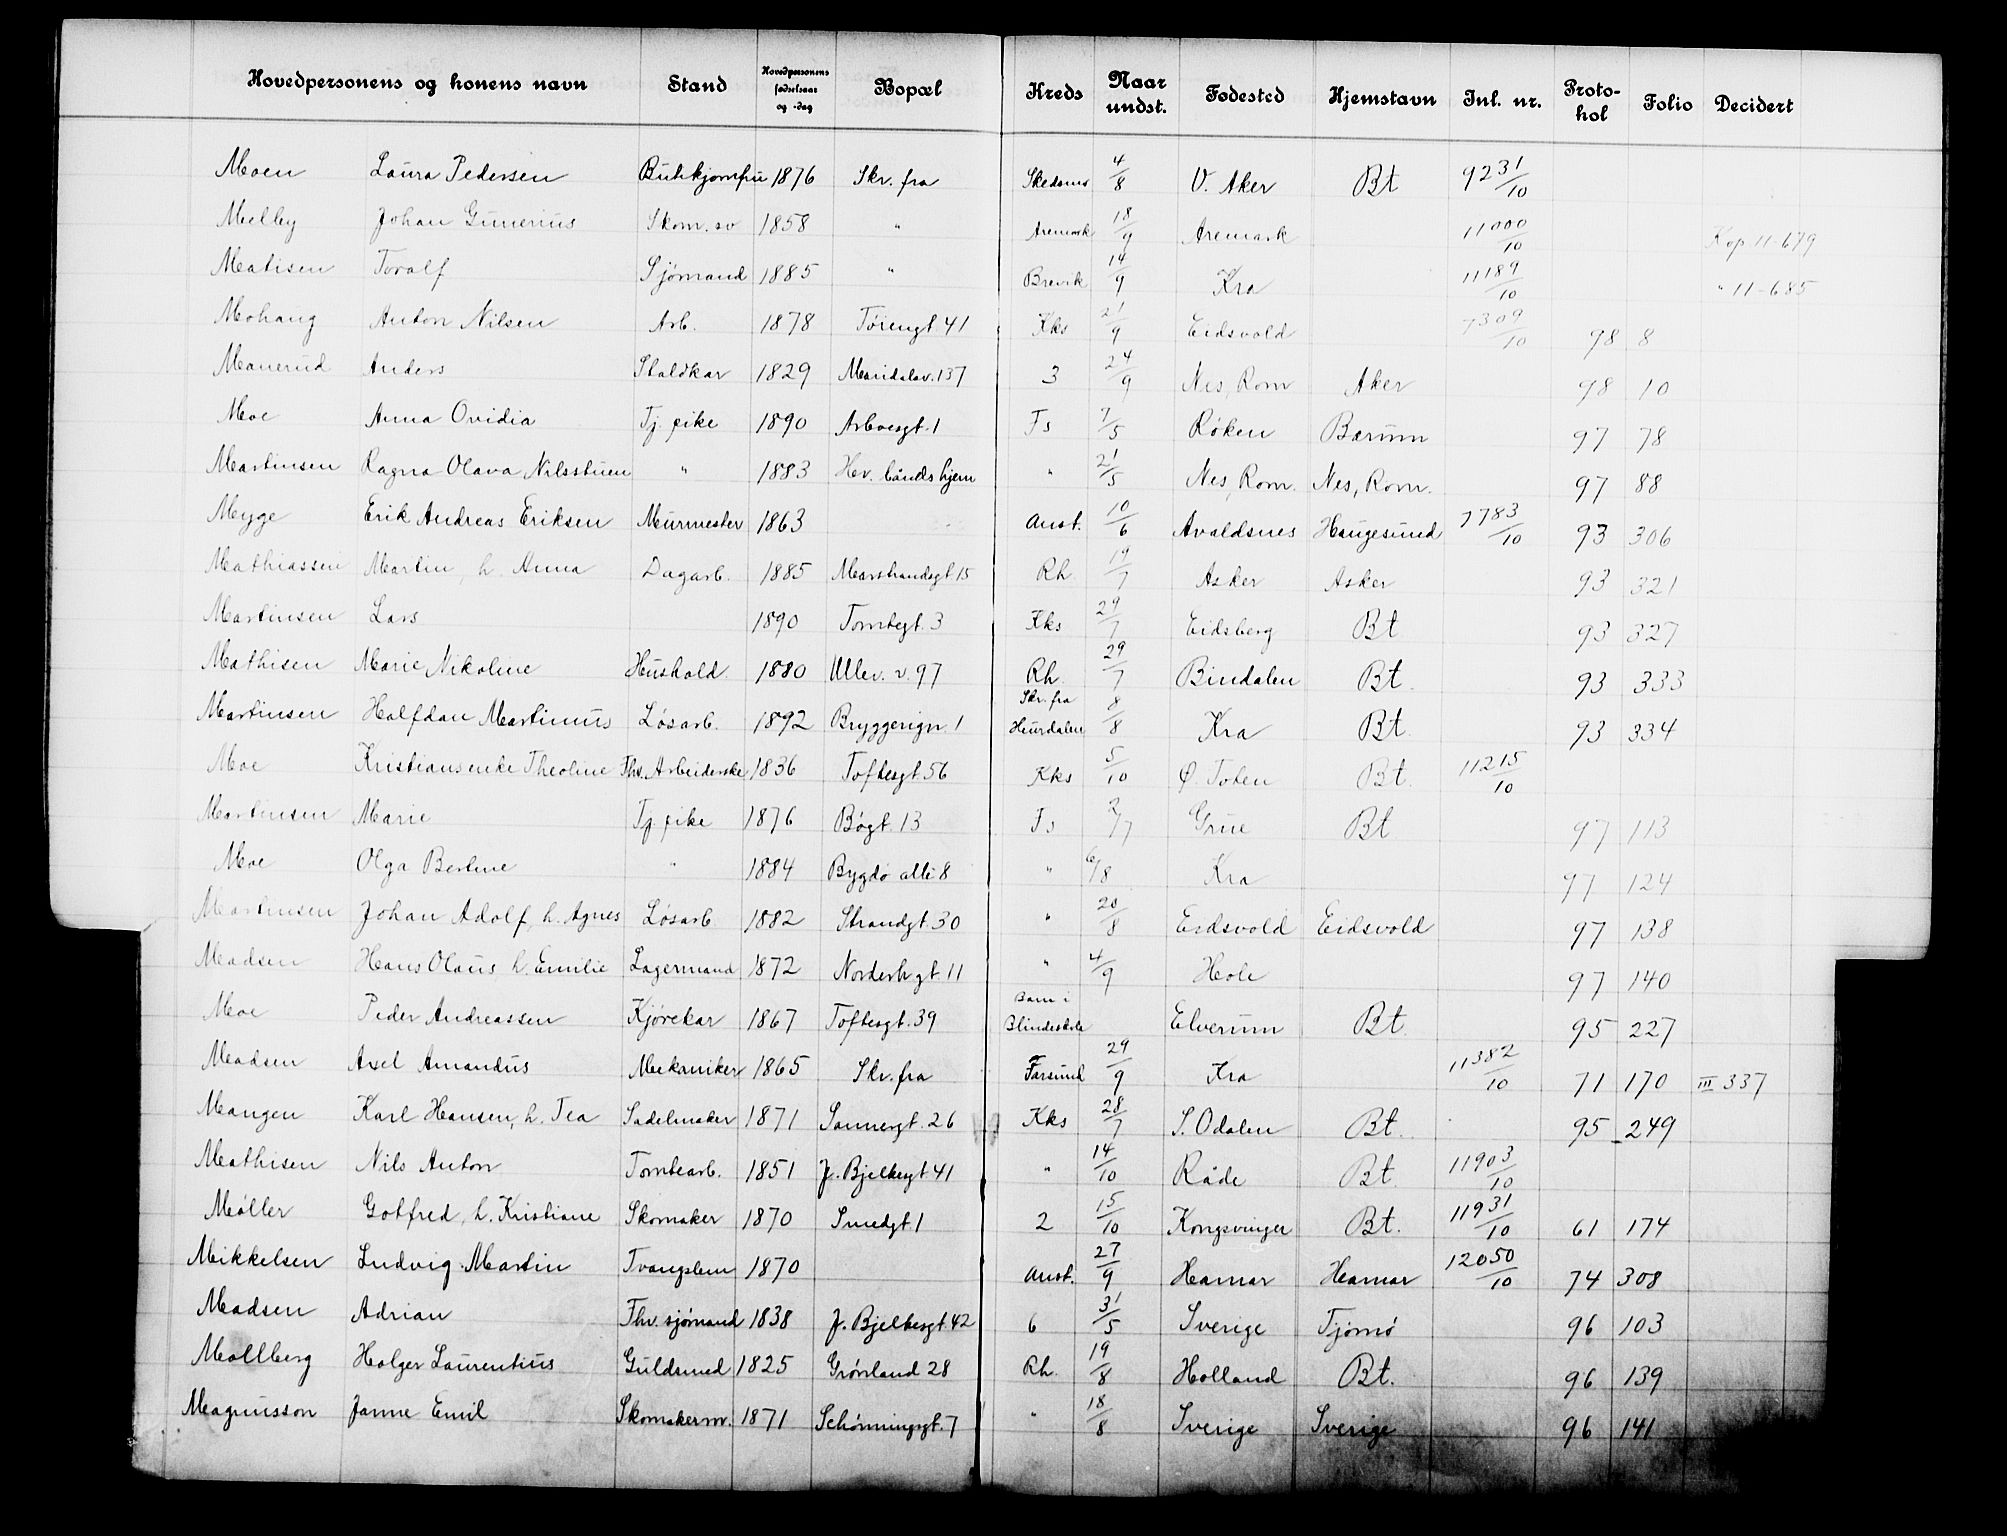 Hovedpersonens og konens navn Stand Hovedpersonens fødselsaar og -dag Bopæl Kreds Naar undst. Fødested Hjemstavn Inl. nr. Protokol Folio Decidert
Moen Laura Pedersen Butikjomfru 1876 Skr. fra Skedsmo 4/8 V. Aker Bt 9231/10
Melby Johan Gunerius Skom. sv 1858 " Aremark 18/9 Aremark 11000/10 Kop 11-679
Matisen Toralf Sjømand 1885 " Brevik 14/9 Kra 11189/10 " 11-685
Mohaug Anton Nilsen Arb. 1878 Tøiengt 41 Kks 21/9 Eidsvold 7309/10 98 8
Manerud Anders Staldkar 1829 Maridalsv. 137 3 24/9 Nes, Rom Aker 98 10
Moe Anna Ovidia Tj. pike 1890 Arboesgt. 1 Fs 7/5 Røken Bærum 97 78
Martinsen Ragna Olava Nilsstuen " 1883 Hv. bånds hjem " 21/5 Nes, Rom. Nes, Rom. 97 88
Myge Erik Andreas Eriksen Murmester 1863 Anst. 10/6 Avaldsnes Haugesund 7783/10 93 306
Mathiassen Martin, h. Anna Dagarb. 1885 Marstrandsgt 15 Rh. 19/7 Asker Asker 93 321
Martinsen Lars 1890 Tomtegt. 3 Kks 29/7 Eidsberg Bt 93 327
Mathisen Marie Nikoline Hushold. 1880 Ullev. v. 97 Rh. 29/7 Bindalen Bt. 93 333
Martinsen Halfdan Martinius Løsarb. 1892 Bryggerign. 1 Skr. fra Hurdalen 8/8 Kra Bt. 93 334
Moe Kristiansenke Theoline Fhv. Arbeiderske 1836 Toftesgt 56 Kks 5/10 Ø. Toten Bt. 11215/10
Martinsen Marie Tj. pike 1876 Bøgt. 13 Fs 2/7 Grue Bt 97 113
Moe Olga Bertine " 1884 Bygdø allé 8 " 6/8 Kra 97 124
Martinsen Johan Adolf, h. Agnes Løsarb. 1882 Strandgt. 30 " 20/8 Eidsvold Eidsvold 97 138
Madsen Hans Olaus h. Emilie Lagermand 1872 Norderhgt. 11 " 4/9 Hole 97 140
Moe Peder Andreassen Kjørekar 1867 Toftesgt. 39 Barn i Blindeskole Elverum Bt. 95 227
Madsen Axel Amandus Mekaniker 1865 Skr. fra Farsund 29/9 Kra 11382/10 71 170 III 337
Mangen Karl Hansen, h. Tea Sadelmaker 1871 Sannergt. 26 Kks 28/7 S. Odalen Bt. 95 249
Mathisen Nils Anton Tomtearb. 1851 J. Bjelkesgt 41 " 14/10 Råde Bt. 11903/10
Møller Gotfred, h. Kristiane Skomaker 1870 Smedgt. 1 2 15/10 Kongsvinger Bt. 11931/10 61 174
Mikkelsen Ludvig Martin Tvangslem 1870 Anst. 27/9 Hamar Hamar 12050/10 74 308
Madsen Adrian Fhv. sjømand 1838 J. Bjelkesgt. 42 6 31/5 Sverige Tjømø 96 103
Mollberg Holger Laurentius Guldsmed 1825 Grønland 28 Rh. 19/8 Holland Bt. 96 139
Magnusson Janne Emil Skomakersv. 1871 Schønningsgt. 7 " 18/8 Sverige Sverige 96 141